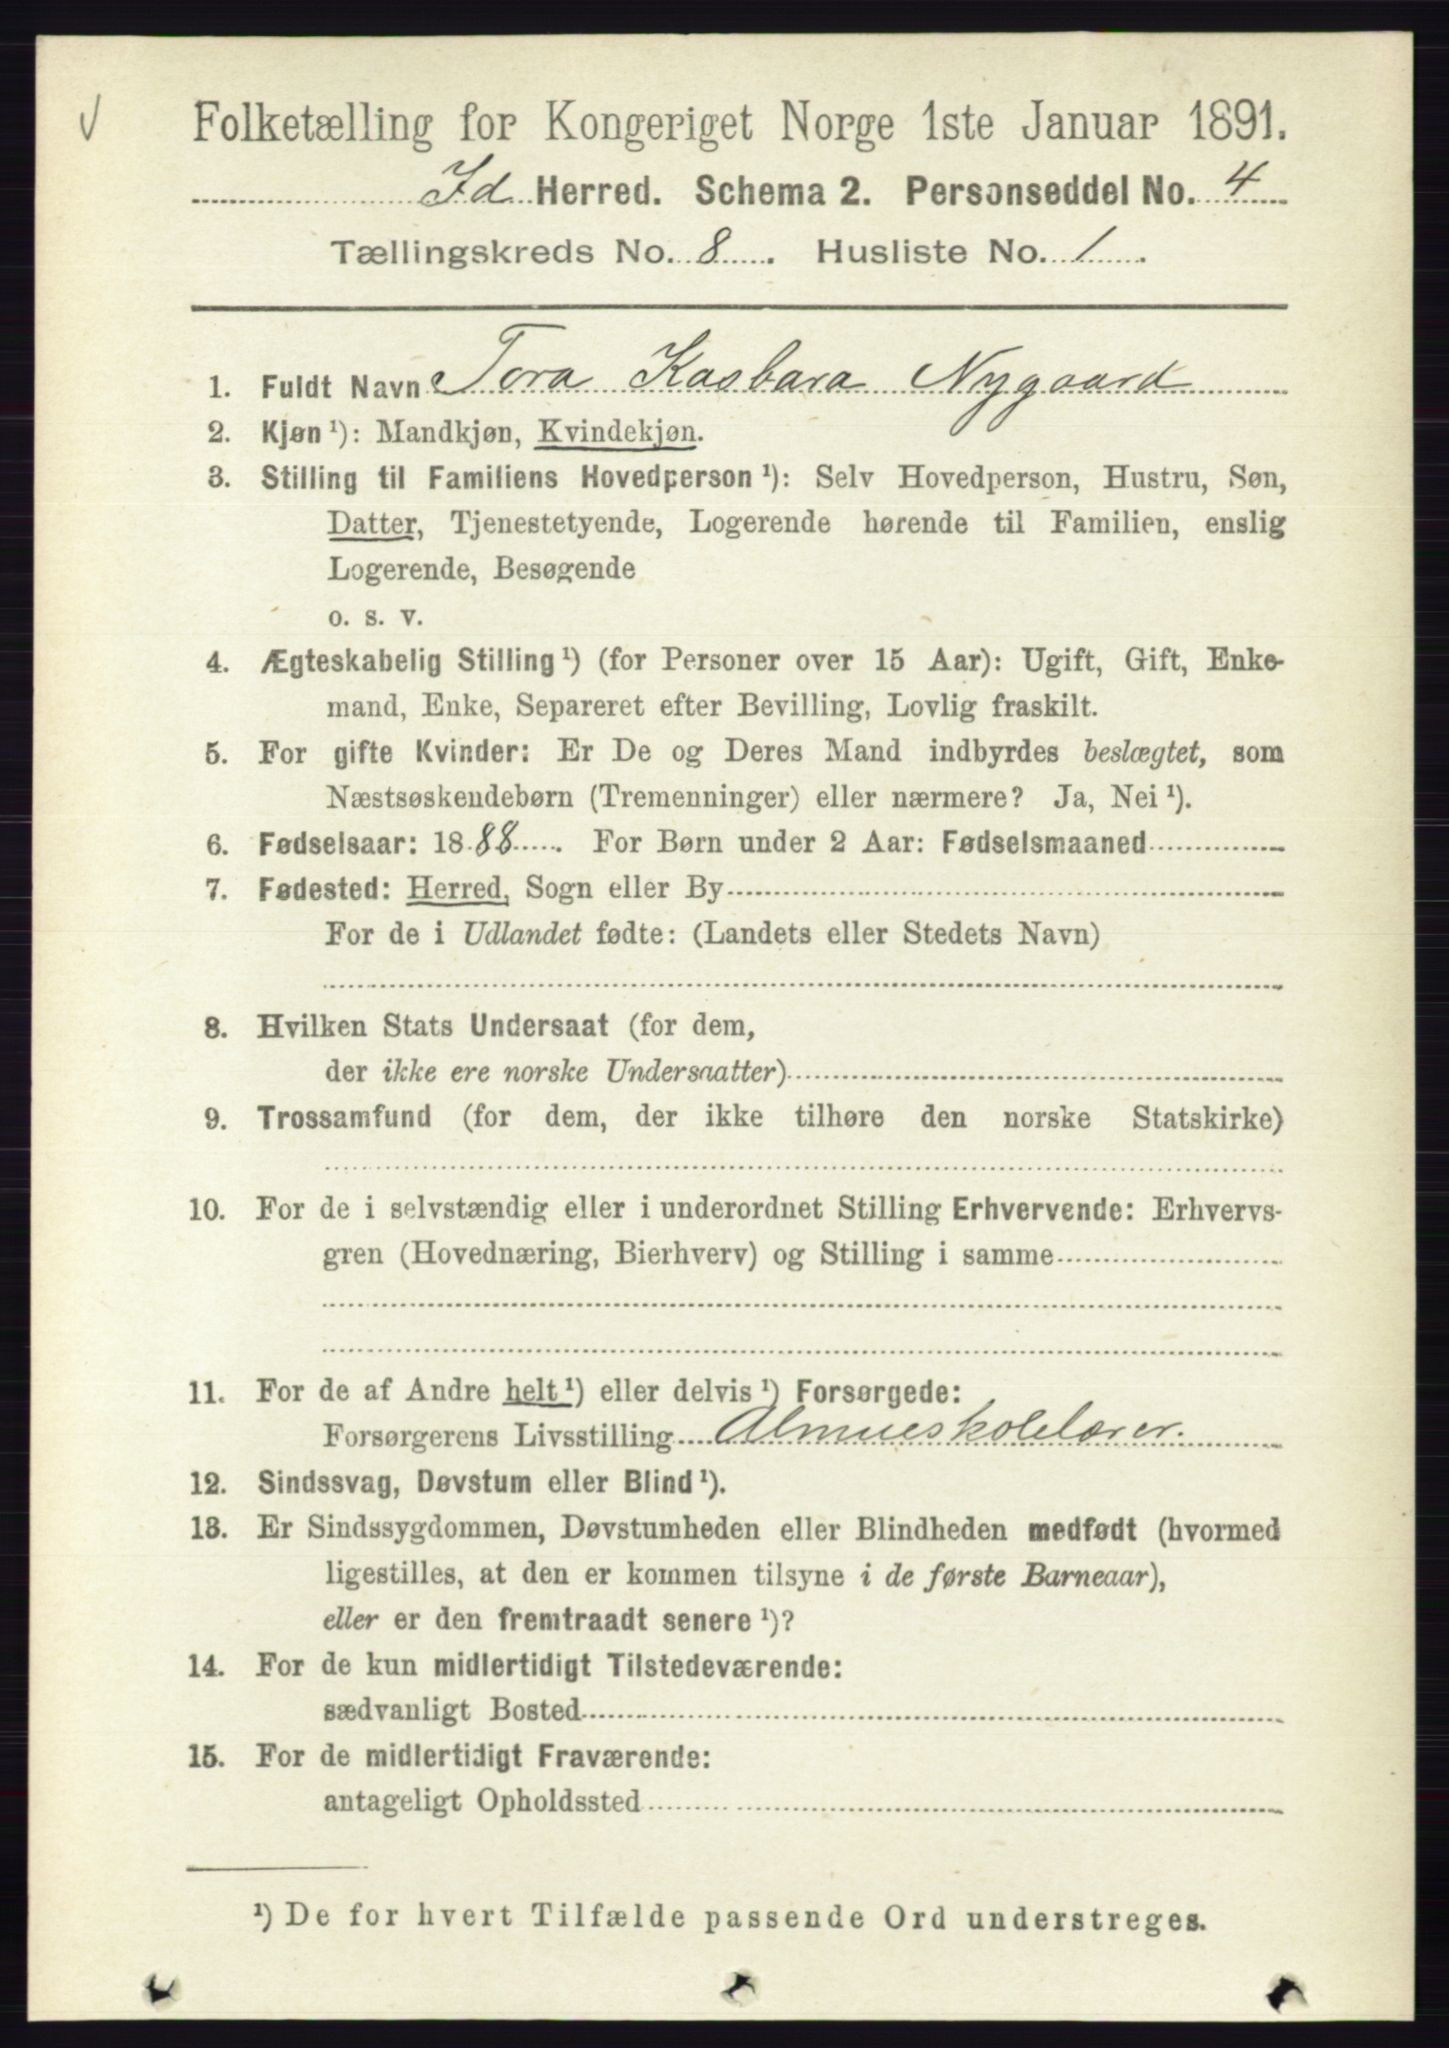 Folketælling for Kongeriget Norge 1ste Januar 1891.
Id Herred. Schema 2. Personseddel No. 4
Tællingskreds No. 8 . Husliste No. 1 .
1. Fuldt Navn Tora Kasbara Nygaard
2. Kjøn ¹): Mandkjøn, Kvindekjøn.
3. Stilling til Familiens Hovedperson ¹): Selv Hovedperson, Hustru, Søn,
Datter, Tjenestetyende, Logerende hørende til Familien, enslig
Logerende, Besøgende
o. s. v.
4. Ægteskabelig Stilling ¹) (for Personer over 15 Aar): Ugift, Gift, Enke-
mand, Enke, Separeret efter Bevilling, Lovlig fraskilt.
5. For gifte Kvinder: Er De og Deres Mand indbyrdes beslægtet, som
Næstsøskendebørn (Tremenninger) eller nærmere? Ja, Nei ¹).
6. Fødselsaar: 1888 . For Børn under 2 Aar: Fødselsmaaned
7. Fødested: Herred, Sogn eller By
For de i Udlandet fødte: (Landets eller Stedets Navn)
8. Hvilken Stats Undersaat (for dem,
der ikke ere norske Undersaatter)
9. Trossamfund (for dem, der ikke tilhøre den norske Statskirke)
10. For de i selvstændig eller i underordnet Stilling Erhvervende: Erhvervs-
gren (Hovednæring, Bierhverv) og Stilling i samme
11. For de af Andre helt ¹) eller delvis ¹) Forsørgede:
Forsørgerens Livsstilling Almueskolelærer.
12. Sindssvag, Døvstum eller Blind ¹).
13. Er Sindssygdommen, Døvstumheden eller Blindheden medfødt (hvormed
ligestilles, at den er kommen tilsyne i de første Barneaar),
eller er den fremtraadt senere ¹)?
14. For de kun midlertidigt Tilstedeværende:
sædvanligt Bosted
15. For de midlertidigt Fraværende:
antageligt Opholdssted
¹) De for hvert Tilfælde passende Ord understreges.